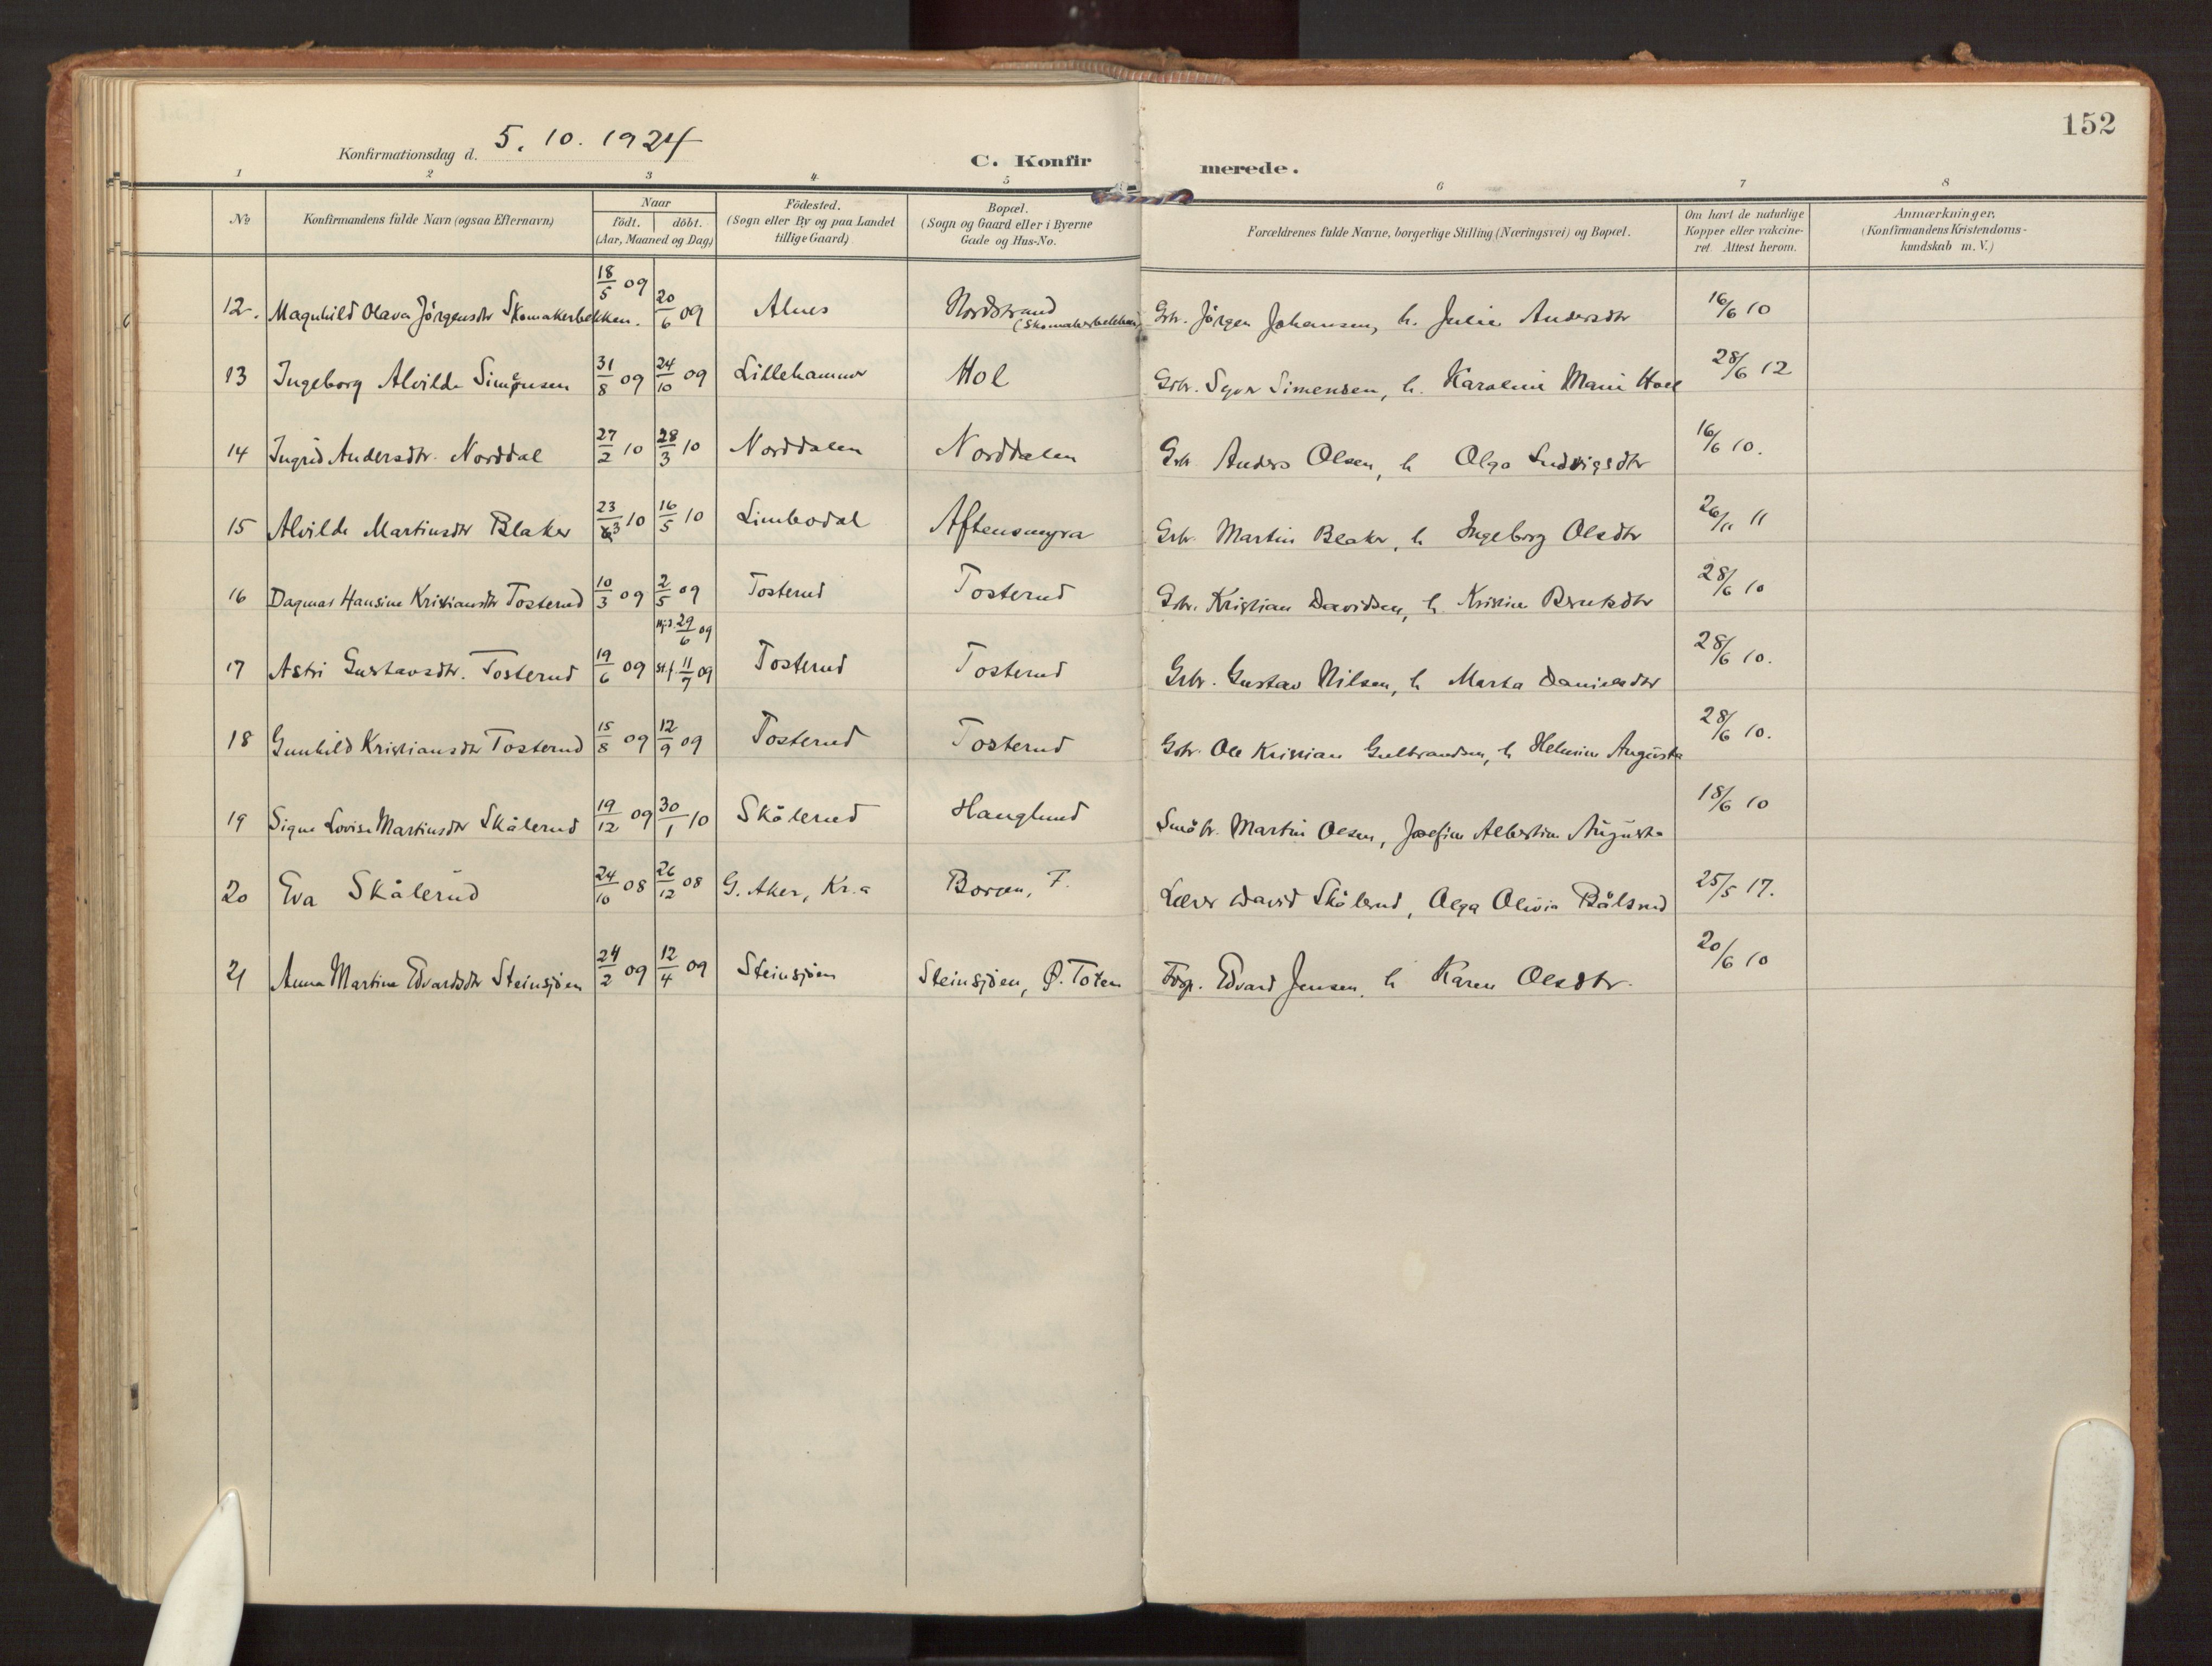 152
Konfirmationsdag d. 5. 10. 1924
C. Konfirmerede.
1 2 3 4 5 6 7 8
No
Konfirmandens fulde Navn (ogsaa Efternavn)
Naar
födt. döbt.
(Aar, Maaned og Dag)
Födested.
(Sogn eller By og paa Landet
tillige Gaard)
Bopæl.
(Sogn og Gaard eller i Byerne
Gade og Hus-No.
Forældrenes fulde Navne, borgerlige Stilling (Næringsvei) og Bopæl.
Om havt de naturlige
Kopper eller vakcine-
ret. Attest herom.
Anmærkninger,
(Konfirmandens Kristendoms-
kundskab m. V.)
12. Magnhild Olava Jörgensdtr Skomakerbekken. 18/5 09 20/6 09 Alnes Nordstrand (Skomakerbekken) Grbr. Jörgen Johansen, h. Julie Andersdtr 16/6 10
13 Ingeborg Alvilde Simensen 31/8 09 24/10 09 Lillehammer Hol Grbr. Syver Simensen, h. Karoline Marie Hoel 28/6 12
14 Ingrid Andersdtr. Norddal 27/2 10 28/3 10 Norddalen Norddalen Grbr Anders Olsen, h Olga Ludvigsdtr 16/6 10.
15 Alvilde Martinsdtr Blaker 23/3 10 16/5 10 Limbodal Aftensmyra Grbr. Martin Blaker, h Ingeborg Olsdtr 26/11 11
16 Dagmar Hansine Kristiansdtr Tosterud 10/3 09 2/5 09 Tosterud Tosterud Grbr. Kristian Davidsen, h. Kristine Berntsdtr 28/6 10
17 Astri Gustavsdtr. Tosterud 19/6 09 Hj.d. 29/6 09 st.f. 11/7 09 Tosterud Tosterud Grbr. Gustav Nilsen, h Marta Danielsdtr 28/6 10.
18 Gunhild Kristiansdtr Tosterud 15/8 09 12/9 09 Tosterud Tosterud Grbr. Ole Kristian Gulbrandsen, h Helmine Augusta 28/6 10.
19 Signe Lovise Martinsdtr Skålerud 19/12 09 30/1 10 Skålerud Hauglund Småbr. Martin Olsen, Josefine Albertine Augusta 18/6 10
20 Eva Skålerud 24/10 08 26/12 08 G. Aker, Kr.a Borgen, F. Lærer David Skålerud, Olga Olivia Bålsrud 25/5 17.
21 Anna Martine Edvardsdtr Steinsjöen 24/2 09 12/4 09 Steinsjöen Steinsjöen, Ø. Toten Forp. Edvard Jensen, h Karen Olsdtr. 20/6 10